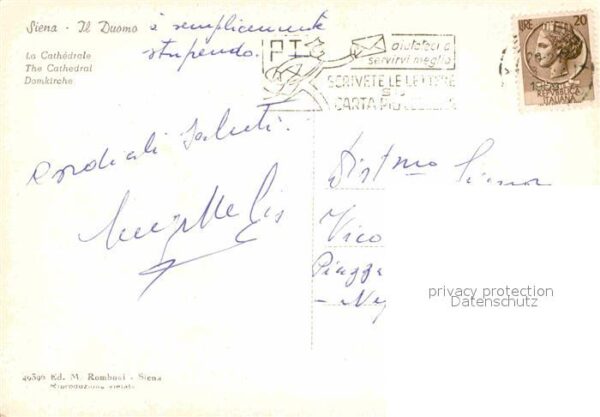 Siena - Il Duomo è semplicemente
stupendo.
La Cathédrale
The Cathedral
Domkirche
PT
aiutateci a
servirvi meglio
SCRIVETE LE LETTERE
SU
CARTA PIÙ
LIRE 20
REPUBBLICA
ITALIANA
Cordiali saluti.
Dist.mo Signor
Vico
Piazza
privacy protection
Datenschutz
49396 Ed. M. Rombusi - Siena
Riproduzione vietata